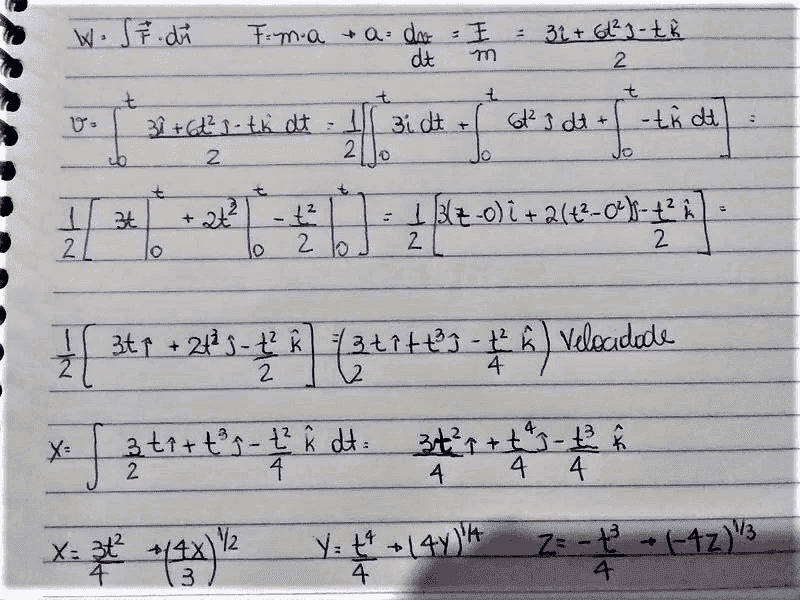 W = ∫ F⃗ · dr⃗   F = m·a → a = dv/dt = F/m = (3î + 6t²ĵ - tk̂)/2
v = ∫₀ᵗ (3î + 6t²ĵ - tk̂ dt)/2 = 1/2 [∫₀ᵗ 3î dt + ∫₀ᵗ 6t² ĵ dt + ∫₀ᵗ -tk̂ dt] =
1/2 [3t |₀ᵗ + 2t³ |₀ᵗ - t²/2 |₀ᵗ] = 1/2 [3(t-0) î + 2(t²-0²)ĵ - t²/2 k̂] =
1/2 [3t î + 2t³ ĵ - t²/2 k̂] = (3/2 t î + t³ ĵ - t²/4 k̂) Velocidade
X = ∫ 3/2 t î + t³ ĵ - t²/4 k̂ dt = 3t²/4 î + t⁴/4 ĵ - t³/4 k̂
X = 3t²/4 → (4X/3)^1/2   Y = t⁴/4 → (4Y)^1/4   Z = -t³/4 → (-4Z)^1/3